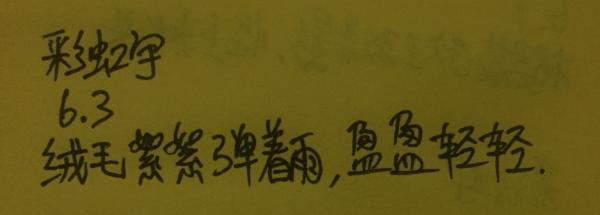 彩虹字
6.3
绒毛絮絮弹着雨,盈盈轻轻.